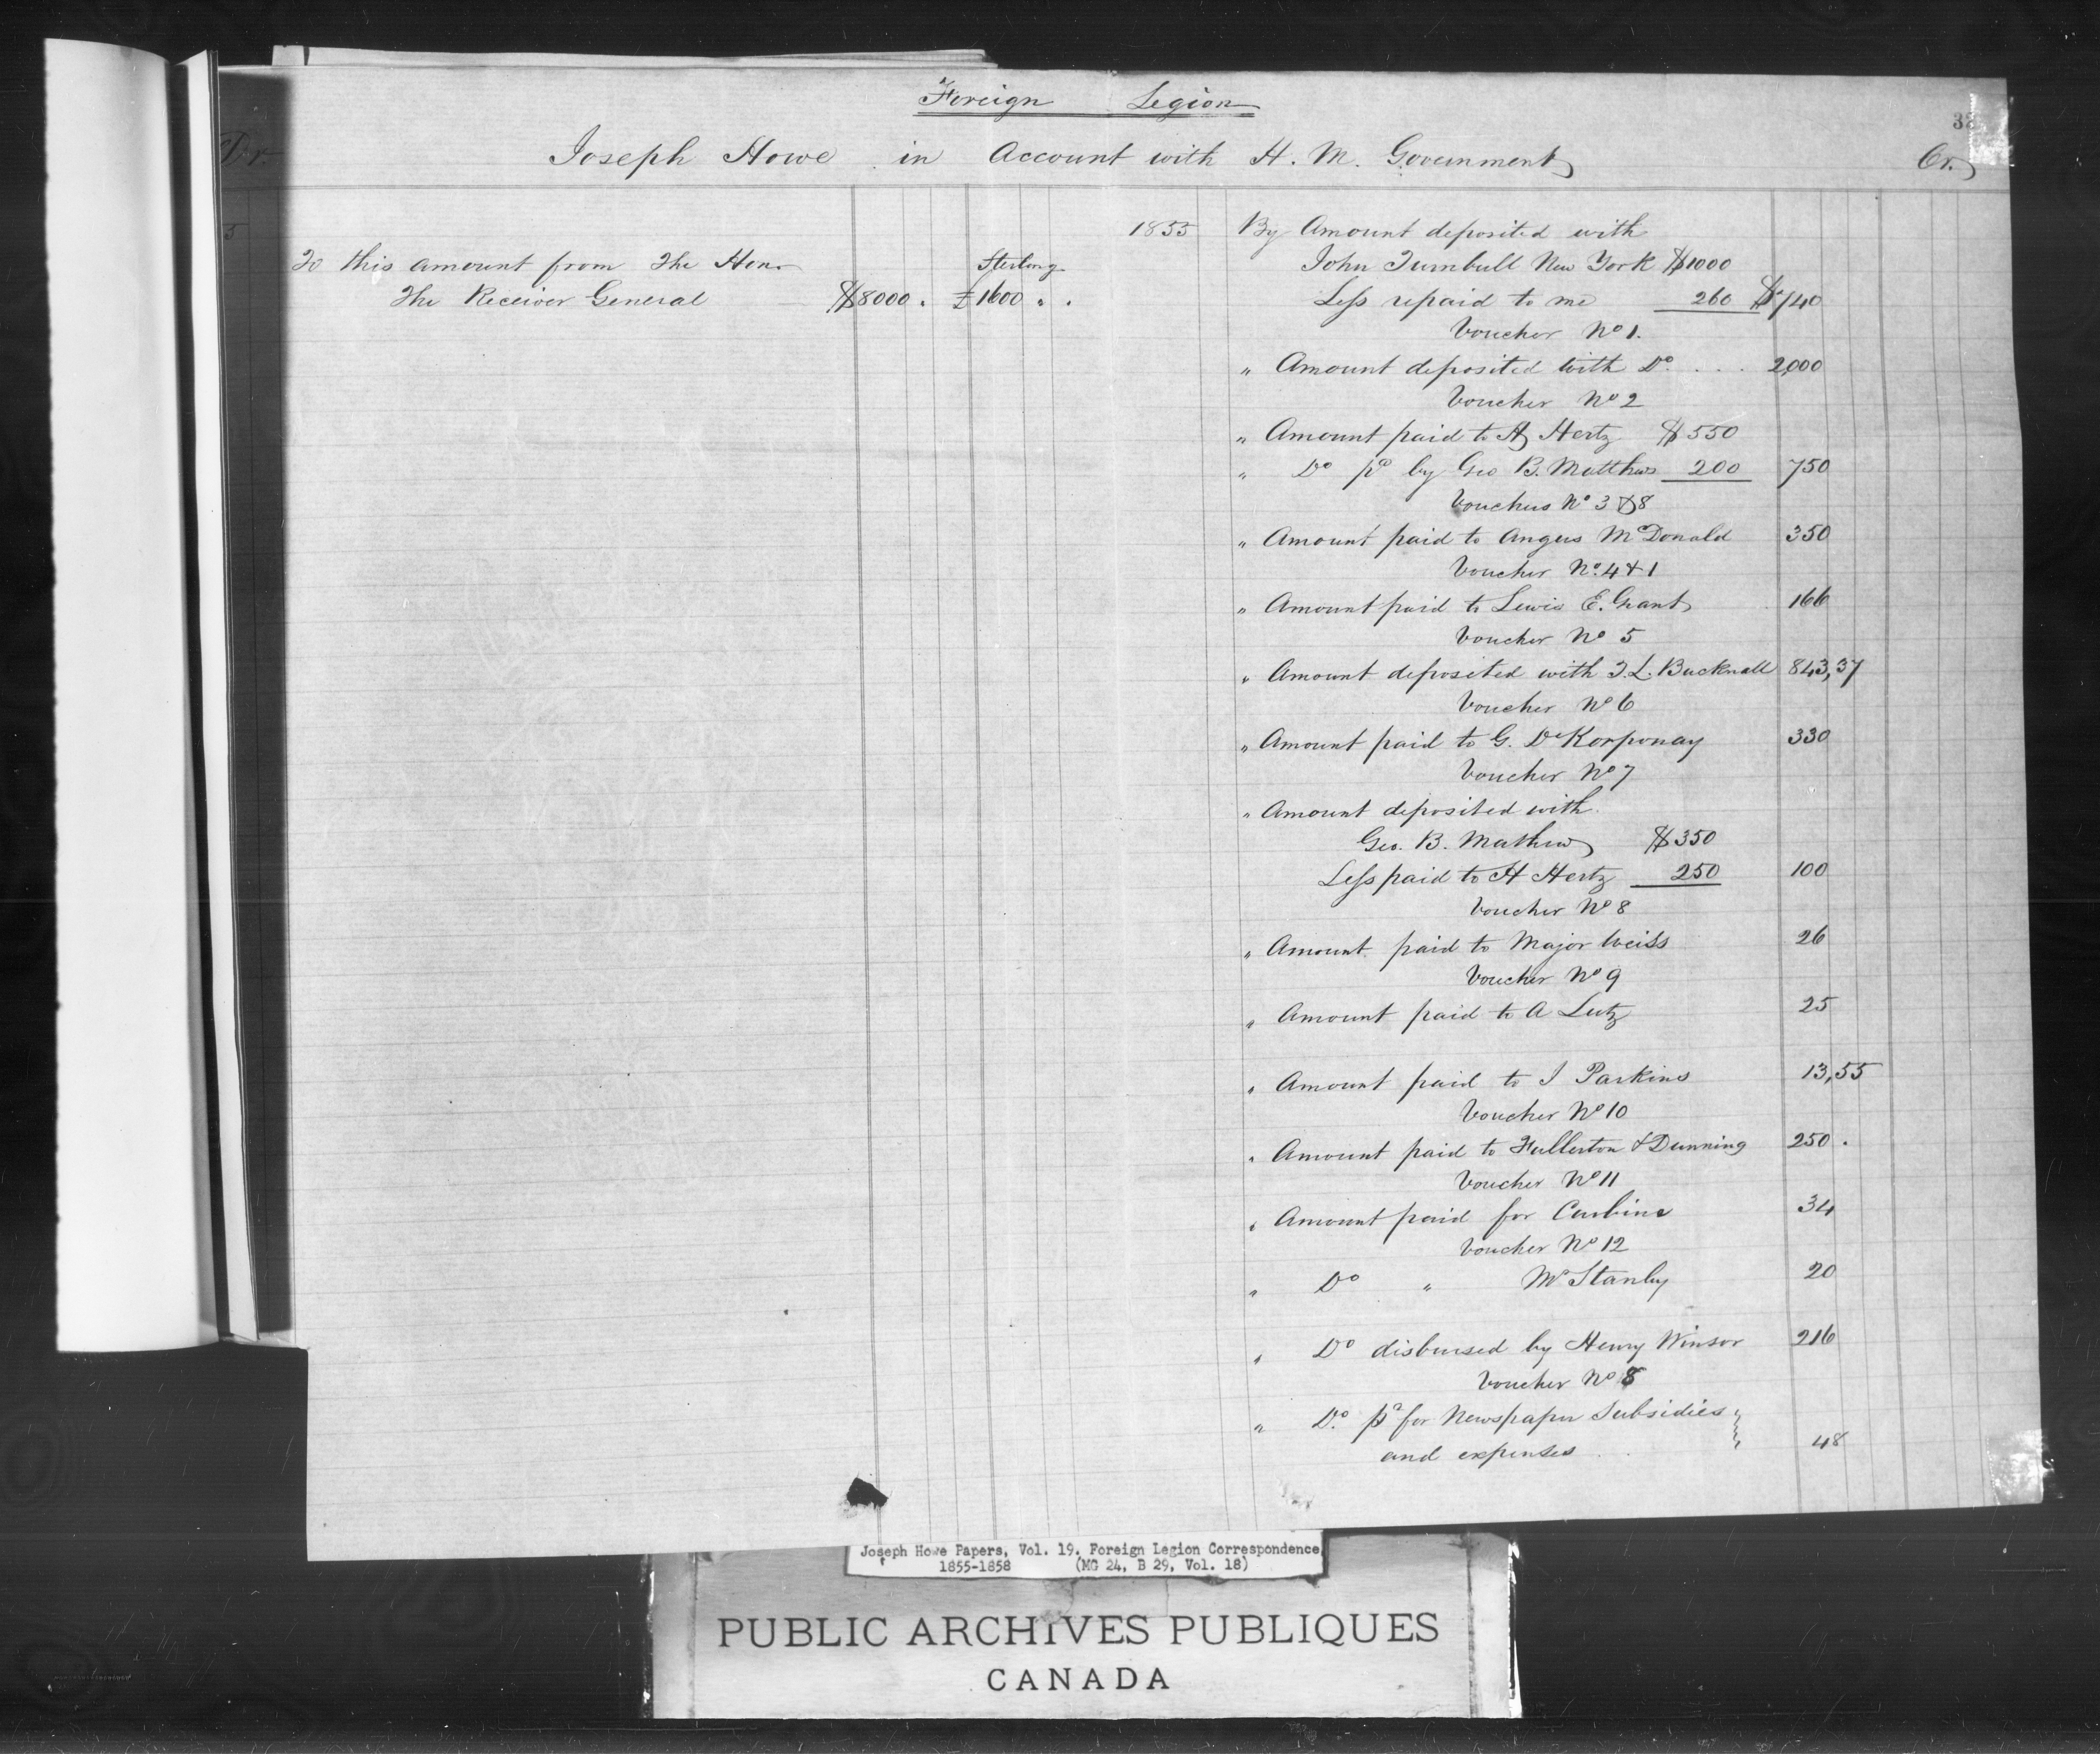 Foreign Legion
Dr. Joseph Howe in Account with H. M. Government Cr.
5
To this amount from The Hon.
Sterling
The Receiver General $8000 . £1600 " .
1855 By Amount deposited with
John Turnbull New York $1000
Less repaid to me 260 $740
Voucher No 1.
" Amount deposited with Do. . . . 2,000
Voucher No 2
" Amount paid to H Hertz $550
" Do pd by Geo B. Matthew 200 750
Vouchers No 3 & 8
" Amount paid to Angus McDonald 350
Voucher No. 4 & 1
" Amount paid to Lewis E. Grant 166
Voucher No 5
" Amount deposited with T. L. Bucknall 843,37
Voucher No 6
" Amount paid to G. De Korponay 330
Voucher No 7
" Amount deposited with
Geo. B. Mathew $350
Less paid to H Hertz 250 100
Voucher No 8
" Amount paid to Major Weiss 26
Voucher No 9
" Amount paid to A Lutz 25
" Amount paid to J Parkins 13,55
Voucher No 10
" Amount paid to Fullerton & Dunning 250 .
Voucher No 11
" Amount paid for Carbine 34
Voucher No 12
" Do " Mr Stanley 20
" Do disbursed by Henry Winsor 216
Voucher No 8
" Do. pd for Newspaper Subsidies
and expenses 48
Joseph Howe Papers, Vol. 19. Foreign Legion Correspondence,
1855-1858 (MG 24, B 29, Vol. 18)
PUBLIC ARCHIVES PUBLIQUES
CANADA